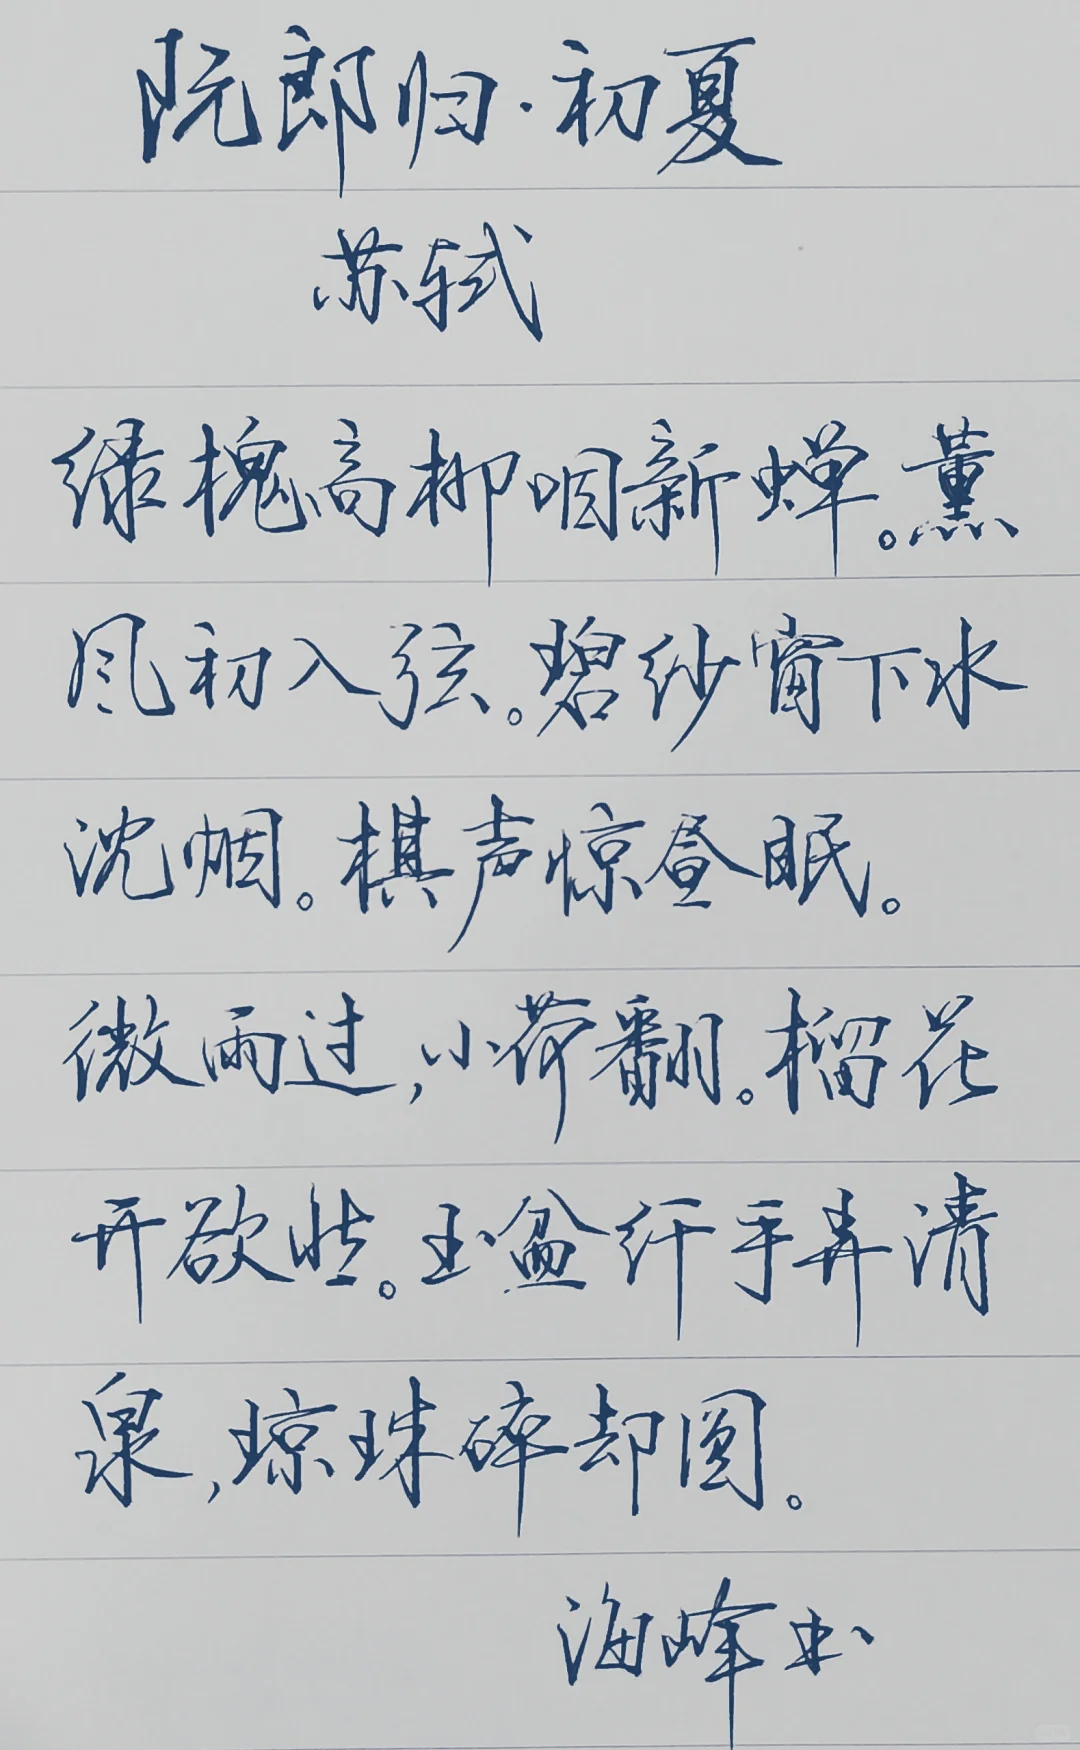 阮郎归·初夏
苏轼
绿槐高柳咽新蝉。薰
风初入弦。碧纱窗下水
沈烟。棋声惊昼眠。
微雨过,小荷翻。榴花
开欲燃。玉盆纤手弄清
泉,琼珠碎却圆。
海峰书